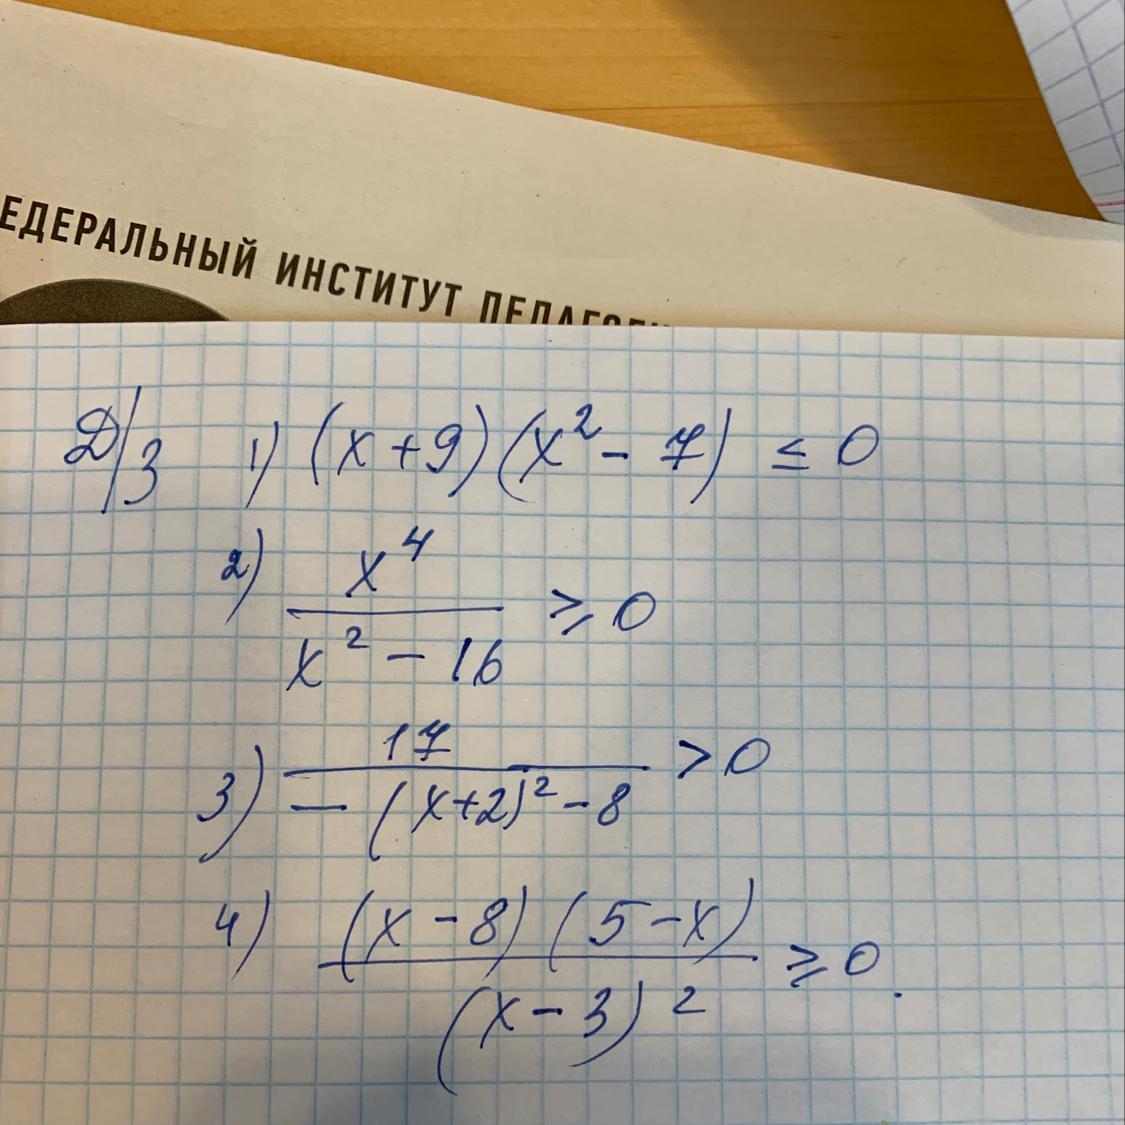 ЕДЕРАЛЬНЫЙ ИНСТИТУТ ПЕДАГОГ
Д/З 1) (x + 9)(x² - 7) ≤ 0
2) x⁴ / (x² - 16) ≥ 0
3) 17 / (- (x+2)² - 8) > 0
4) (x - 8)(5 - x) / (x - 3)² ≥ 0.